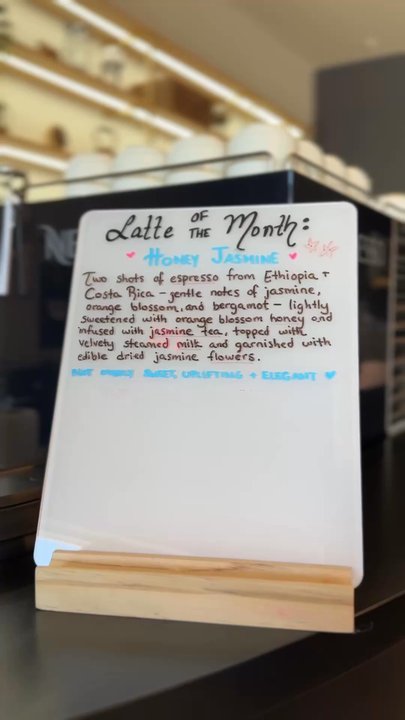 Latte OF THE Month:
HONEY JASMINE
Two shots of espresso from Ethiopia +
Costa Rica - gentle notes of jasmine,
orange blossom, and bergamot - lightly
sweetened with orange blossom honey and
infused with jasmine tea, topped with
velvety steamed milk and garnished with
edible dried jasmine flowers.
NOT OVERLY SWEET, UPLIFTING + ELEGANT